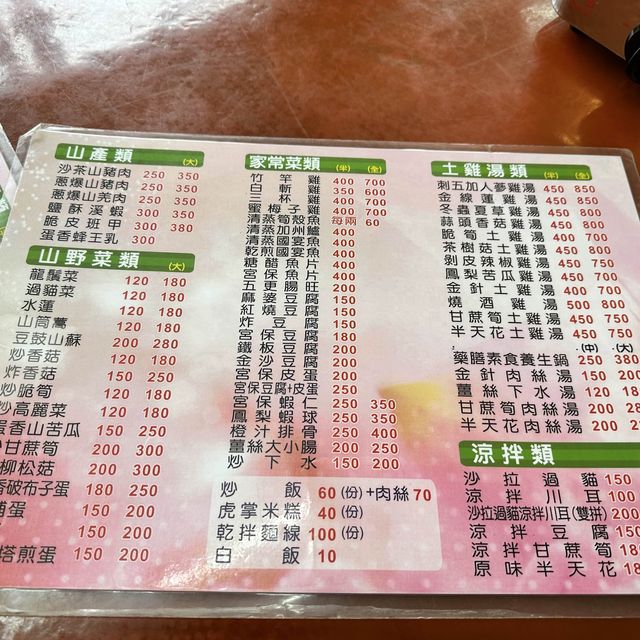 山產類 (大)
沙茶山豬肉 250 350
蔥爆山豬肉 250 350
蔥爆山羌肉 250 350
鹽酥溪蝦 200 300
脆皮班甲 300 350
蛋香蜂王乳 300
山野菜類 (大)
龍鬚菜 120 180
過貓菜 120 180
水蓮 120 180
山茼蒿 120 180
豆鼓山蘇 200 280
炒香菇 120 180
炸香菇 150 250
炒脆筍 120 180
炒高麗菜 120 180
蛋香山苦瓜 150 250
甘蔗筍 200 300
柳松菇 200 300
香破布子蛋 180 250
蛋 150 200
150 200
塔煎蛋 150 200
家常菜類 (半) (全)
竹竿雞 400 700
白斬雞 350 600
三杯雞 400 700
蜜梅子雞 400 700
清蒸筍殼魚 每兩 60
清蒸加州鱸 400
清蒸國宴魚 400
乾煎國宴魚 400
糖醋魚片 200
宮保魚片 200
五更腸旺 200
麻婆豆腐 150
紅燒豆腐 150
炸豆腐 150
宮保豆腐 150
鐵板豆腐 200
宮保皮蛋 200
宮保豆腐+皮蛋 200
宮保蝦仁 250 350
鳳梨蝦球 250 350
橙汁排骨 250 400
薑絲大小腸 200
炒下水 150
炒飯 60 (份) +肉絲 70
虎掌米糕 40 (份)
乾拌麵線 100 (份)
白飯 10
土雞湯類 (半) (全)
刺五加人參雞湯 450 850
金線蓮雞湯 450 850
冬蟲夏草雞湯 450 850
蒜頭香菇雞湯 450 850
脆筍土雞湯 400 700
茶樹菇土雞湯 450 750
剝皮辣椒雞湯 450 750
鳳梨苦瓜雞湯 450 750
金針土雞湯 400 700
燒酒雞 500 800
甘蔗筍土雞湯 450 750
半天花土雞湯 450 750
(中) (大)
藥膳素食養生鍋 250 380
金針肉絲湯 150 200
薑絲下水湯 120 180
甘蔗筍肉絲湯 200
半天花肉絲湯 200
涼拌類
沙拉過貓 150
涼拌川耳 100
沙拉過貓涼拌川耳(雙拼) 200
涼拌豆腐
涼拌甘蔗筍
原味半天花